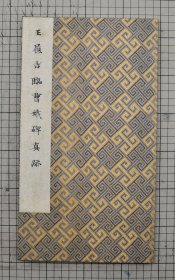 王履吉臨曹娥碑真跡